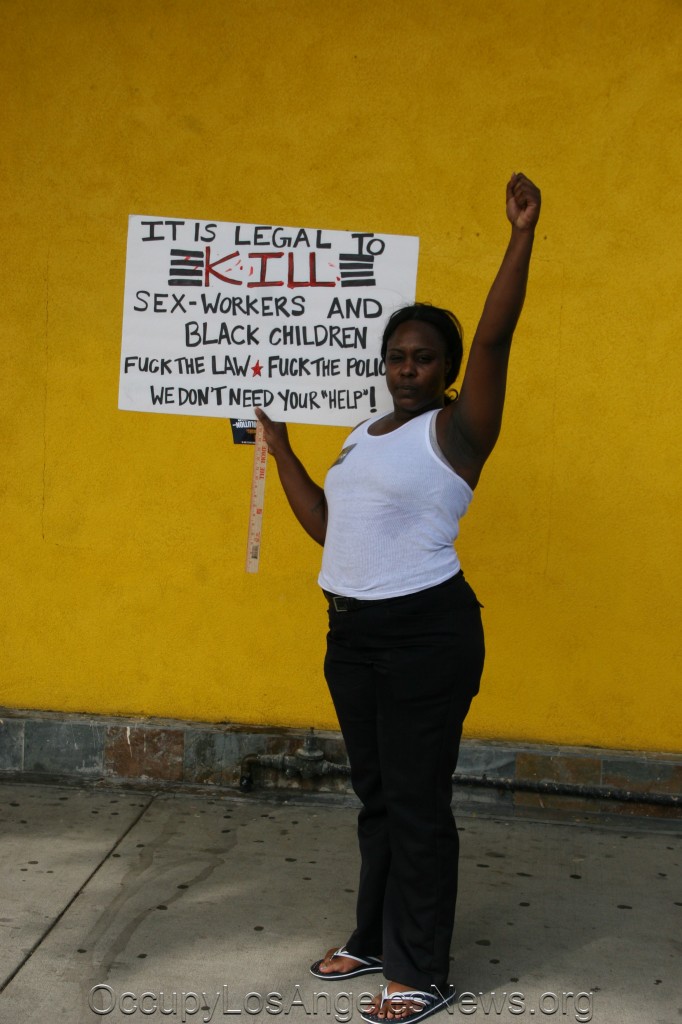 IT IS LEGAL TO
KILL
SEX-WORKERS AND
BLACK CHILDREN
FUCK THE LAW ★ FUCK THE POLIC
WE DON'T NEED YOUR "HELP"!
OccupyLosAngelesNews.org